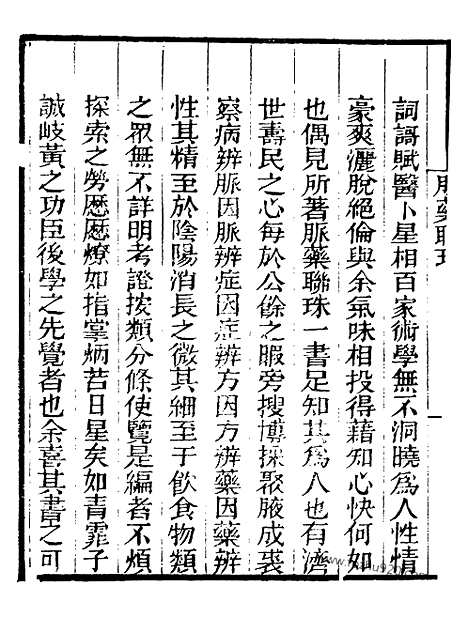 脈藥聯珠
一
詞謌賦醫卜星相百家術學無不洞曉為人性情
豪爽灑脫絕倫與余氣味相投得藉知心快何如
也偶見所著脈藥聯珠一書足知其為人也有濟
世壽民之心每於公餘之暇旁搜博採聚腋成裘
察病辨脈因脈辨症因症辨方因方辨藥因藥辨
性其精至於陰陽消長之微其細至于飲食物類
之眾無不詳明考證按類分條使覽是編者不煩
探索之勞歷歷燎如指掌炳若日星矣如青霏子
誠岐黃之功臣後學之先覺者也余喜其書之可